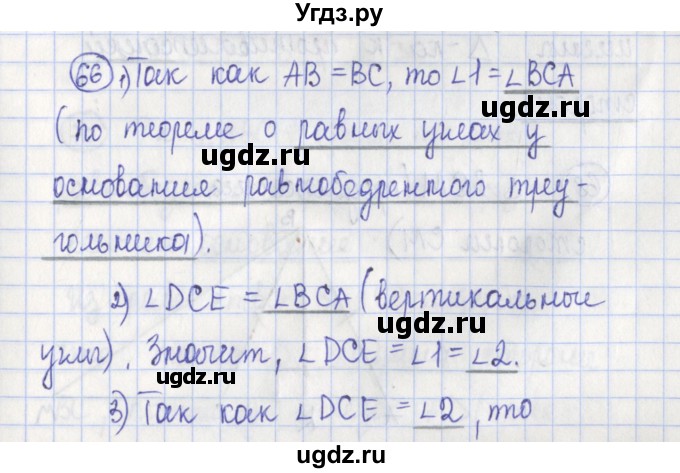 Угдз.ру
66 1) Так как AB = BC, то ∠1 = ∠BCA
ugdz.ru
(по теореме о равных углах у
ugdz.ru
основания равнобедренного треу-
ugdz.ru
гольника).
ugdz.ru
2) ∠DCE = ∠BCA (вертикальные
ugdz.ru
углы). Значит, ∠DCE = ∠1 = ∠2.
ugdz.ru
3) Так как ∠DCE = ∠2, то
ugdz.ru